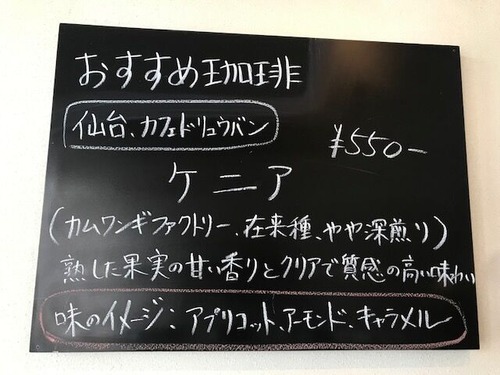 おすすめ珈琲
仙台、カフェドリュウバン
¥550-
ケニア
(カムワンギファクトリー、在来種、やや深煎り)
熟した果実の甘い香りとクリアで質感の高い味わい
味のイメージ:アプリコット、アーモンド、キャラメル